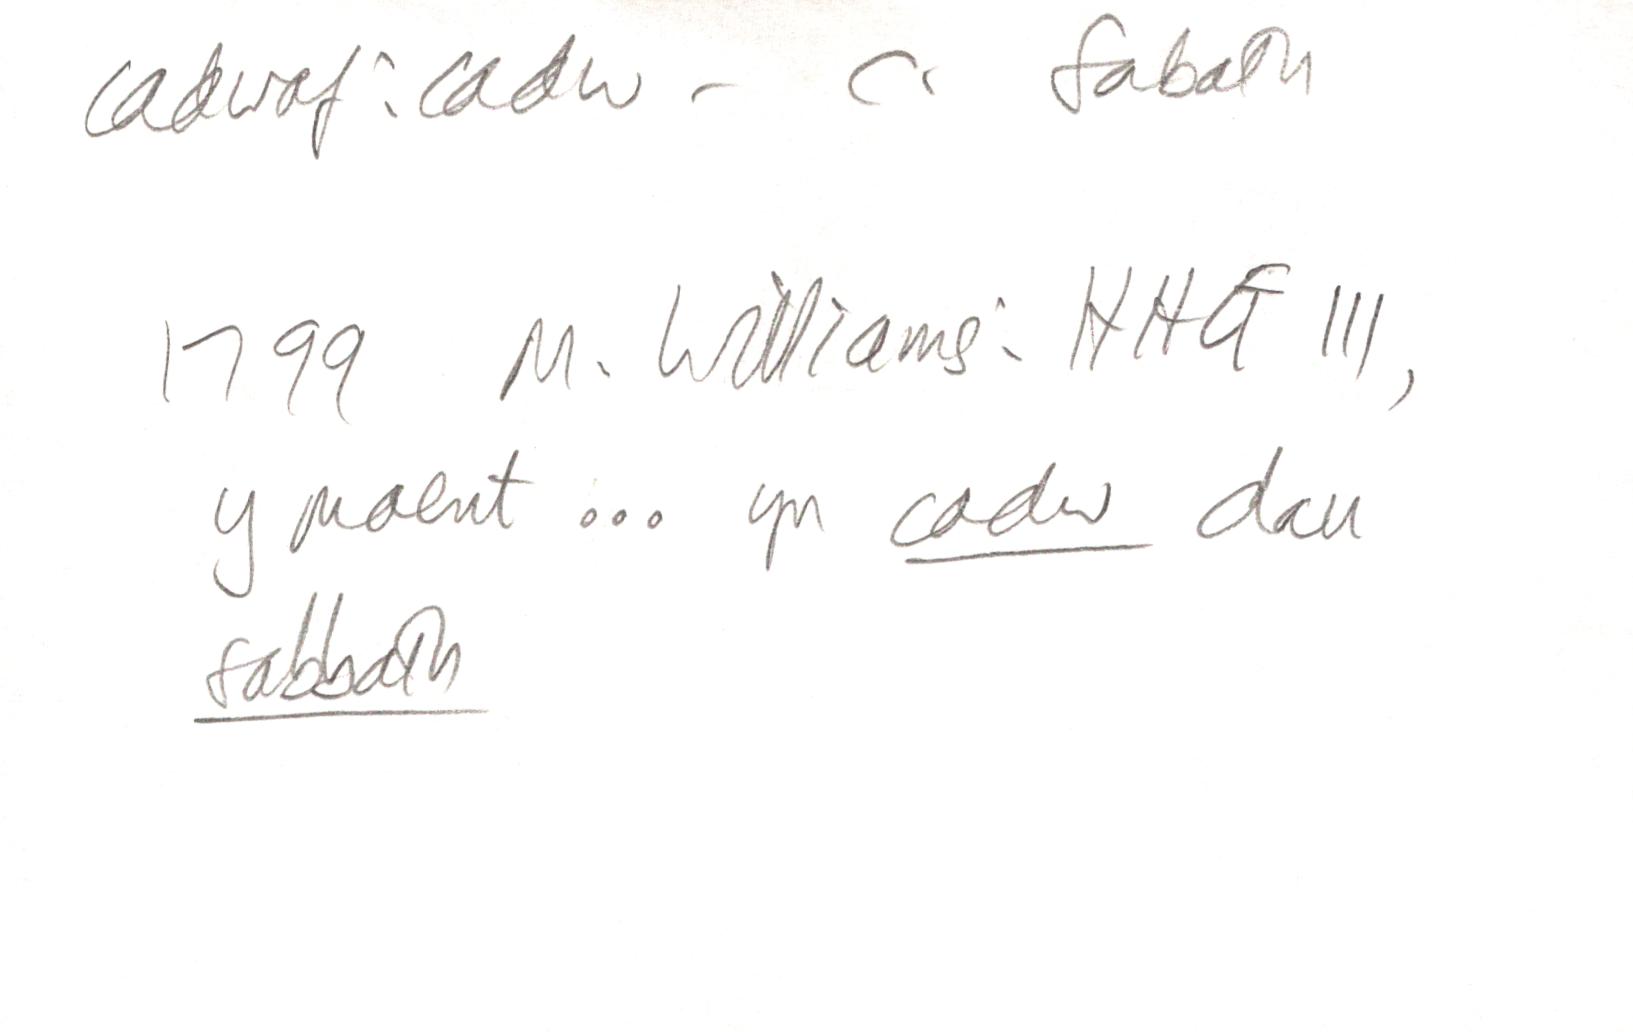 cadwaf: cadw - c. Sabath
1799 M. Williams: HHG III,
y maent ... yn cadw dau
sabbath